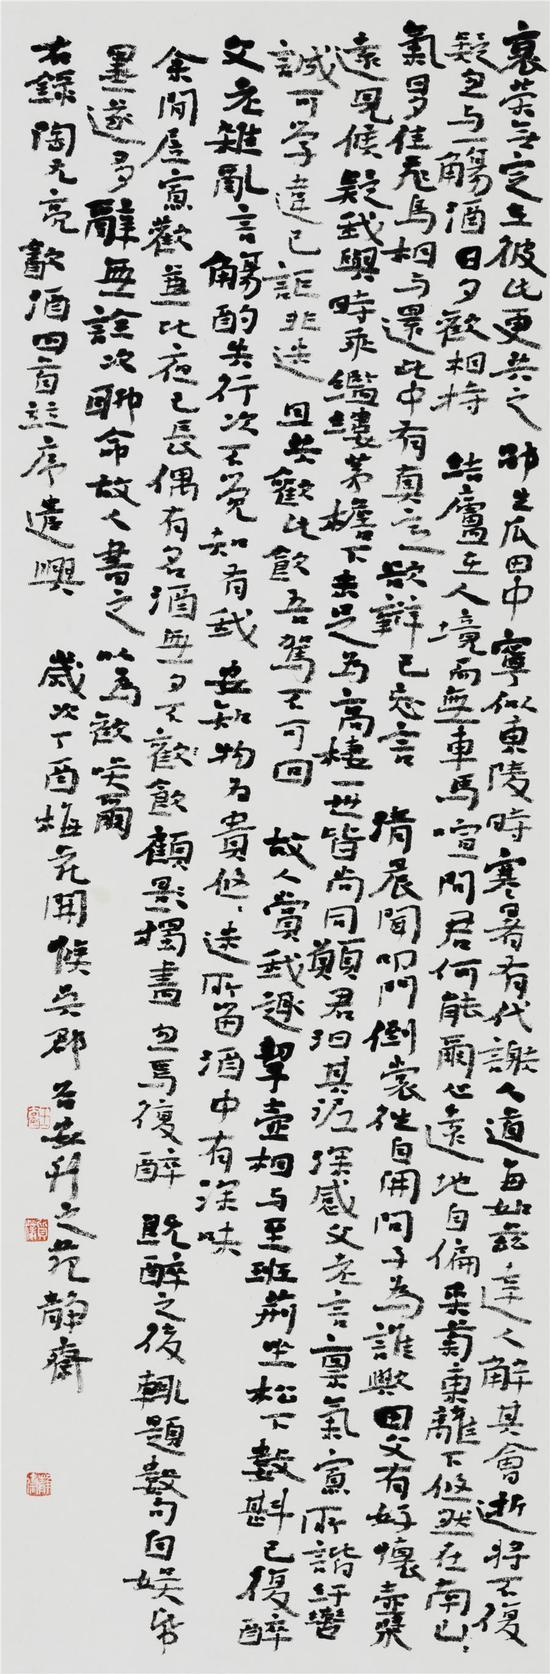 衰荣無定在彼此更共之 邵生瓜田中寧似東陵時寒暑有代謝人道每如兹達人解其會逝將不復
疑忽与一觴酒日夕歡相持 结廬在人境而無車馬喧问君何能爾心遠地自偏采菊東籬下悠然在南山、
氣多佳飛鳥相与還此中有真意欲辯已忘言 清晨聞叩門倒裳往自開问子為誰歟田父有好懷壺漿
遠見候疑我與時乖繿縷茅檐下未足為高棲一世皆尚同願君汩其泥深感父老言稟氣寡所諧紆轡
誠可学違己詎非迷且共歡此飲吾駕不可回 故人賞我趣挈壺相与至班荆坐松下數斟已復醉
父老雜亂言觴酌失行次不覺知有我 安知物為貴悠、迷所留酒中有深味
余閒居寡歡兼比夜已長偶有名酒無夕不歡飲顧影獨盡忽焉復醉 既醉之後輒題數句自娱紙
墨遂多辭無詮次聊命故人書之以為歡笑爾
右錄陶元亮飲酒四首並序遣興 歲次丁酉梅花開候吴郡之苑静齋